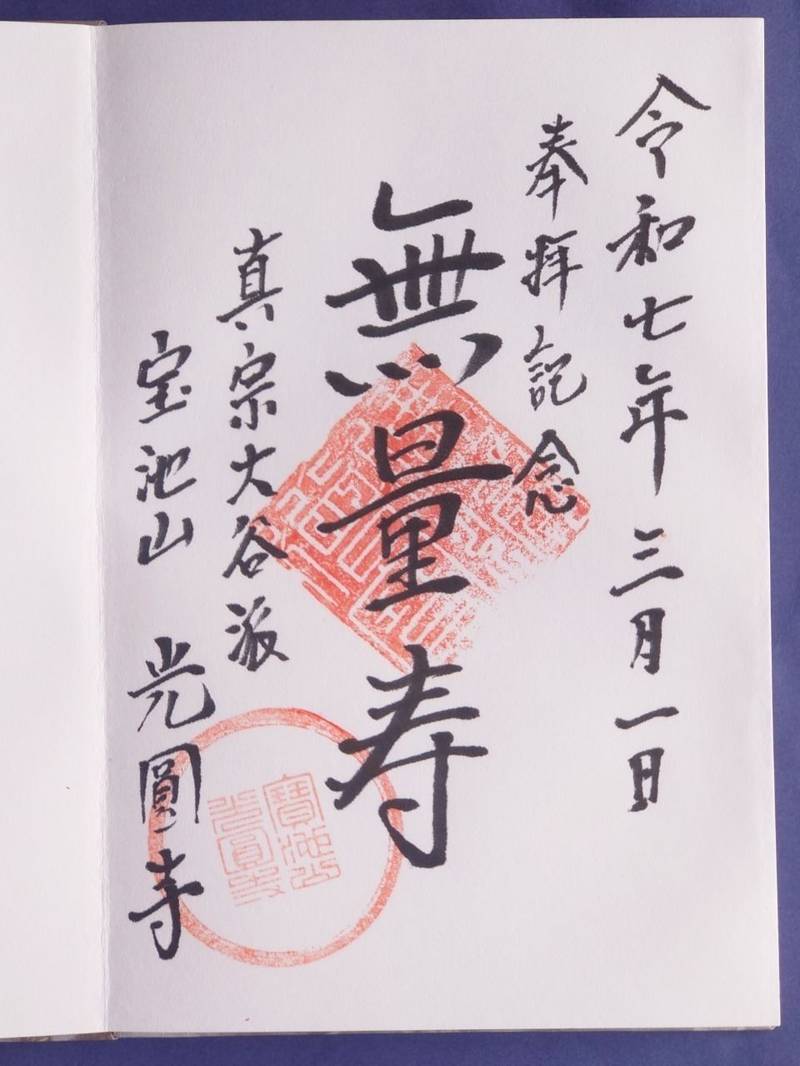 令和七年三月一日
奉拝記念
無量寿
真宗大谷派
宝池山 光圓寺
寶池山
光圓寺